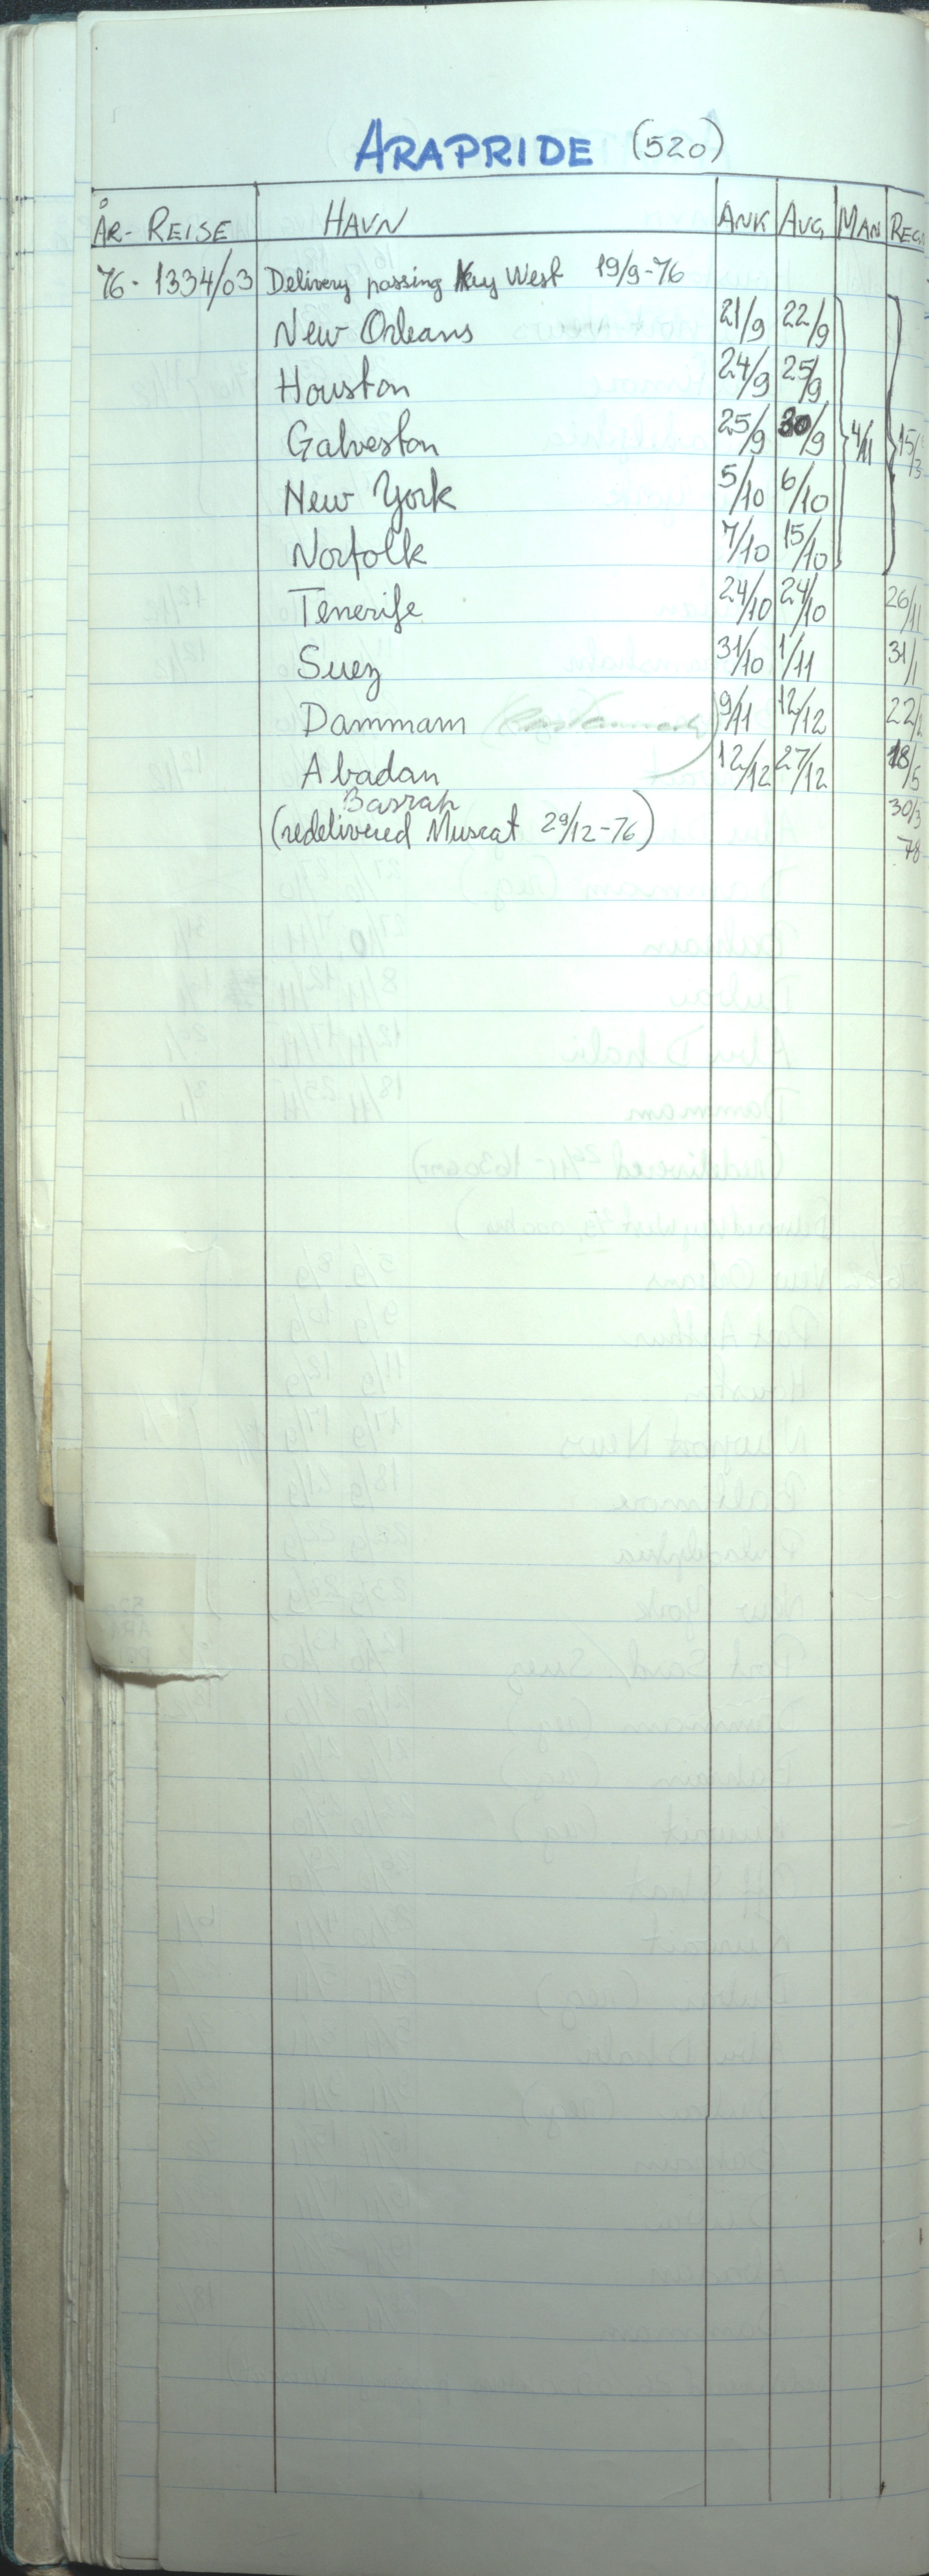 ARAPRIDE (520)
ÅR- REISE HAVN ANK AVG MAN REGN
76- 1334/03 Delivery passing Key West 19/9-76
New Orleans 21/9 22/9
Houston 24/9 25/9
Galveston 25/9 30/9 4/11 15/3
New York 5/10 6/10
Norfolk 7/10 15/10
Tenerife 24/10 24/10 26/11
Suez 31/10 1/11 31/1
Dammam 9/11 12/12 22/
Abadan 12/12 27/12 18/5
Basrah 30/3
(redelivered Muscat 29/12-76) 78